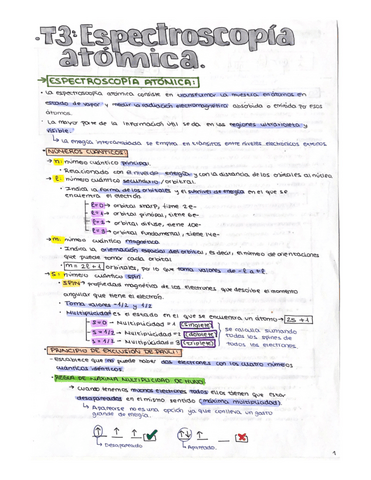 T3: Espectroscopía
atómica.
→ ESPECTROSCOPÍA ATÓMICA:
· La espectroscopía atómica consiste en transformar la muestra en átomos en
estado de vapor y medir la radiación electromagnética absorbida o emitida por esos
átomos.
· La mayor parte de la información útil se da en las regiones ultravioleta y
visible.
↳ La energía intercambiada se emplea en tránsitos entre niveles electrónicos externos
· NÚMEROS CUÁNTICOS:
→ n: número cuántico principal
· Relacionado con el nivel de energía y con la distancia de los orbitales al núcleo
→ l: número cuántico secundario/orbital.
· Indica la forma de los orbitales y el subnivel de energía en el que se
encuentra el electrón
l=0 → orbital sharp, tiene 2e-
l=1 → orbital principal, tiene 6e-
l=2 → orbital difuse, tiene 10e-
l=3 → orbital fundamental, tiene 14e-
→ m: número cuántico magnético
· Indica la orientación espacial del orbital, es decir, el número de orientaciones
que puede tomar cada orbital
· m = 2l+1 orbitales, por lo que toma valores de -l a +l.
→ S: número cuántico spin.
· SPIN → propiedades magnéticas de los electrones que describe el momento
angular que tiene el electrón.
· Toma valores -1/2 y 1/2
· Multiplicidad es el estado en el que se encuentra un átomo → 2S+1
S=0 → Multiplicidad = 1 (singlete)
S=1/2 → Multiplicidad = 2 (doblete)
S=1 → Multiplicidad = 3 (triplete)
se calcula sumando
todos los spines de
todos los electrones.
· PRINCIPIO DE EXCLUSIÓN DE PAULI:
· Establece que no puede haber dos electrones con los cuatro números
cuánticos idénticos
· REGLA DE MÁXIMA MULTIPLICIDAD DE HUND:
↳ Cuando tenemos muchos electrones todos ellos tienen que estar
desapareados en el mismo sentido (máxima multiplicidad)
↳ Aparearse no es una opción ya que conlleva un gasto
grande de energía.
↳ Desapareado
↳ Apareado
1